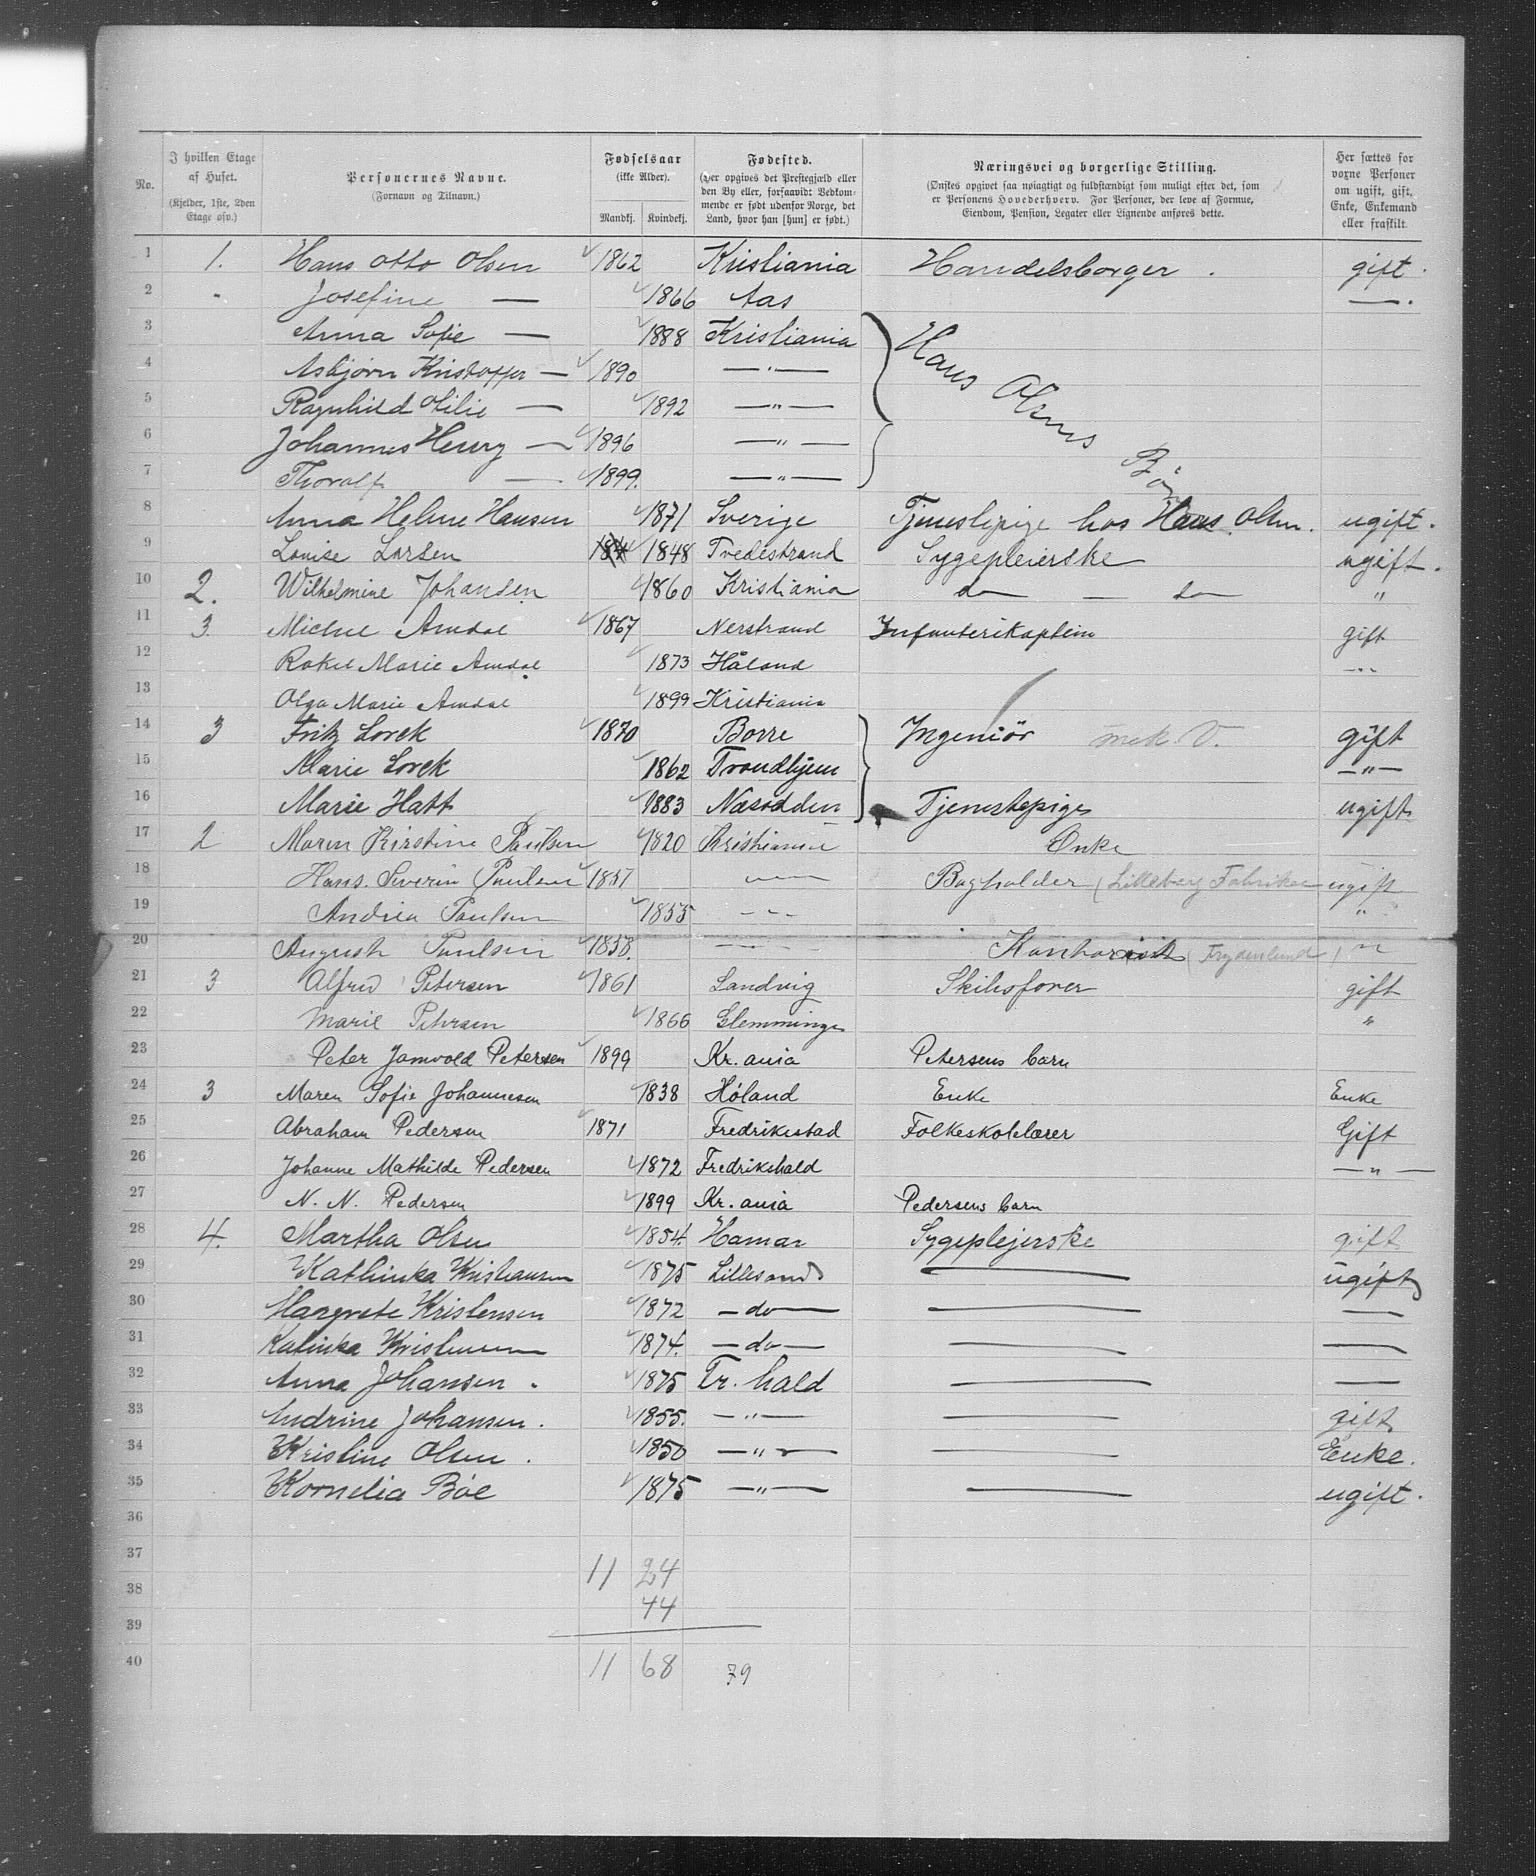 No.
I hvilken Etage af Huset.
(Kjelder, 1ste, 2den Etage osv.)
Personernes Navne.
(Fornavn og Tilnavn.)
Fødselsaar
(ikke Alder).
Mandkj. Kvindekj.
Fødested.
(Her opgives det Prestegjæld eller den By eller, forsaavidt Vedkommende er født udenfor Norge, det Land, hvor han [hun] er født.)
Næringsvei og borgerlige Stilling.
(Ønskes opgivet saa nøiagtigt og fuldstændigt som muligt efter det, som er Personens Hovederhverv. For Personer, der leve af Formue, Eiendom, Pension, Legater eller Lignende anføres dette.
Her sættes for voxne Personer om ugift, gift, Enke, Enkemand eller fraskilt.
1 1. Hans Otto Olsen 1862 Kristiania Handelsborger. gift.
2 " Josefine — 1866 Aas —.
3 Anna Sofie — 1888 Kristiania Hans Olsens Børn
4 Asbjørn Kristoffer — 1890 —"—
5 Ragnhild Otilie — 1892 —"—
6 Johannes Henry — 1896 —"—
7 Thorolf — 1899. —"—
8 Anna Helene Hansen 1871 Sverige Tjenestepige hos Hans Olsen. ugift.
9 Louise Larsen 1848 Tvedestrand Sygepleierske ugift.
10 2. Wilhelmine Johansen 1860 Kristiania do — do "
11 3. Michel Amdal 1867 Nerstrand Infanterikaptein gift
12 Rakel Marie Amdal 1873 Håland —"—
13 Olga Marie Amdal 1899 Kristiania
14 3 Fritz Lorck 1870 Borre Ingeniør mek. V. gift
15 Marie Lorck 1862 Trondhjem —"—
16 Marie Hatt 1883 Næsodden Tjenestepige ugift
17 2 Maren Kirstine Paulsen 1820 Kristiania Enke
18 Hans Severin Paulsen 1857 —"— Bogholder (Lilleborg Fabriker ugift
19 Andrea Paulsen 1855 —"— "
20 August Paulsen 1858. —"— Kontorist (Frydenlund) "
21 3 Alfred Petersen 1861 Landvig Skibsfører gift
22 Marie Petersen 1866 Glemminge "
23 Peter Jamvold Petersen 1899 Kr.ania Petersens barn
24 3 Maren Sofie Johannesen 1838 Høland Enke Enke
25 Abraham Pedersen 1871 Fredrikstad Folkeskolelærer Gift
26 Johanne Mathilde Pedersen 1872 Fredrikshald —"—
27 N. N. Pedersen 1899 Kr.ania Pedersens barn
28 4. Martha Olsen 1854. Hamar Sygeplejerske gift
29 Kathinka Kristiansen 1875 Lillesand — ugift
30 Margrete Kristensen 1872 —do— — —
31 Katinka 1874. —do— — —
32 Anna Johansen. 1875 Fr.hald — —
33 Andrine Johansen. 1855. —"— — gift
34 Kristine Olsen. 1850 —"— — Enke.
35 Kornelia Bøe 1875 —"— — ugift.
36
37 11 24
38 44
39
40 11 68 79